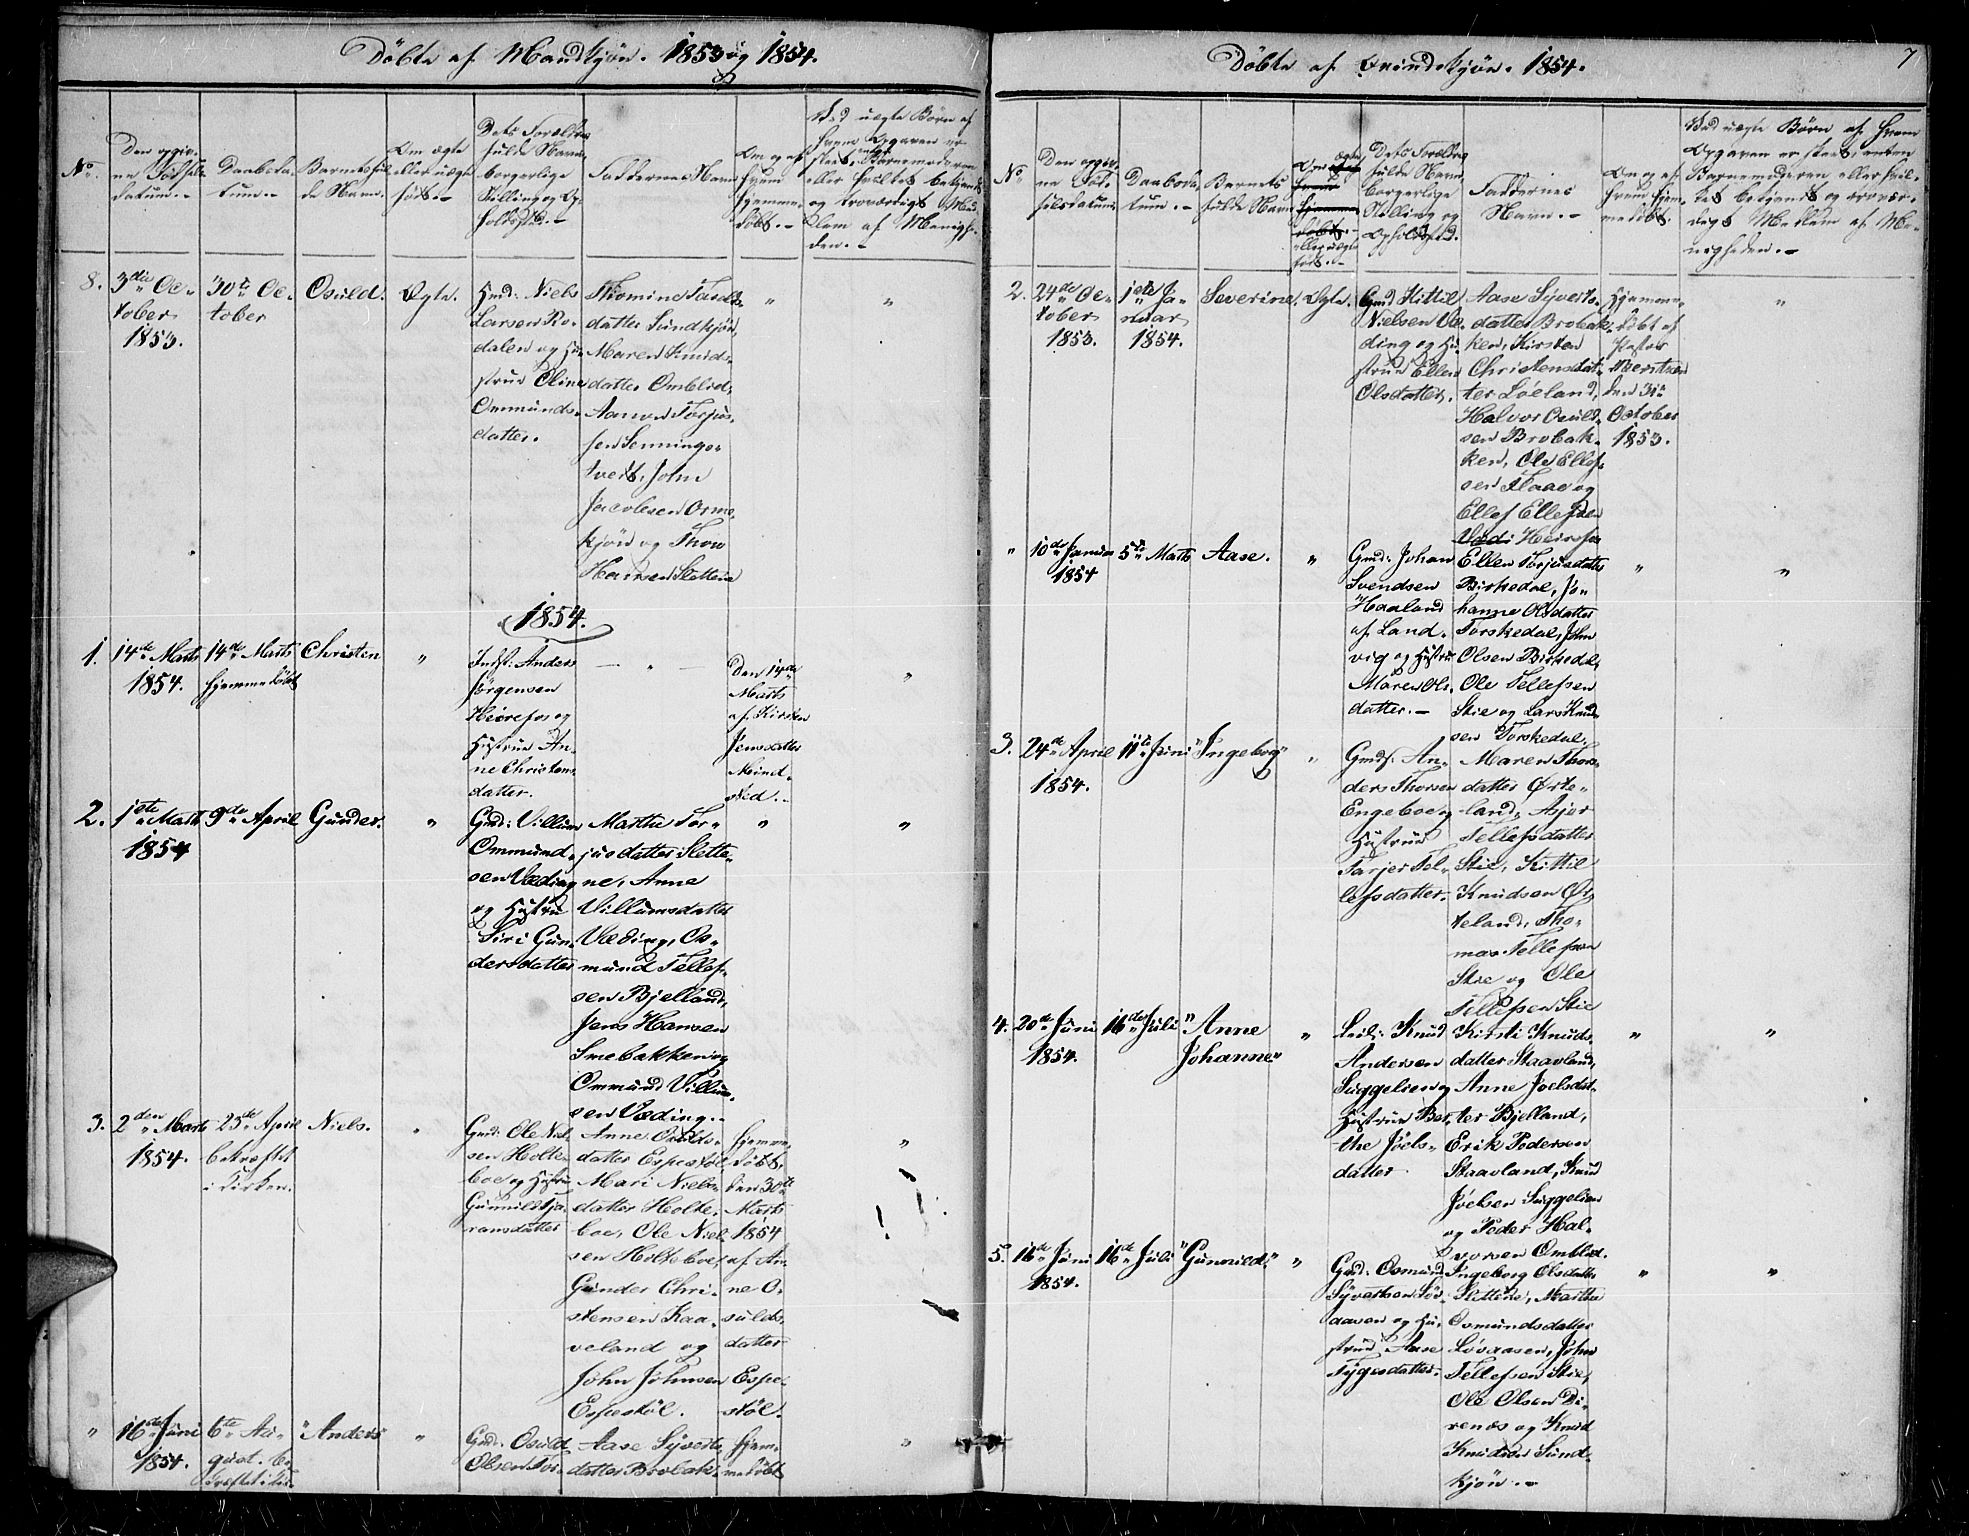 Döbte af Mandkjön. 1853 og 1854.
No.
Den opgiv-
ne Födsels-
datum.-
Daabsda-
tum.-
Barnets ful-
de Navn.
Om ægte
eller uægte
født.-
Dets Forældres
fulde Navn,
borgerlige
Stilling og Op-
holdssted.-
Faddernes Navn
Om og af
hvem
hjemme-
döbt.-
Ved uægte Börn af
hvem Opgaven er
skeet, enten Barnemoderen
eller hvilket bekjendt
og troværdigt Med-
lem af Menighe-
den.-
8.
3die Oc-
tober
1853.
30te Oc-
tober
Osuld.
Ægte.
Gmd: Niels
Larsen Ro-
dalen og Hu-
strue Oline
Ommunds-
datter.
Thomine Tards-
datter Sundkjön,
Maren Knuds-
datter Omblid,
Aanon Torjus-
sen Senninge-
tveit, John
Jacobsen Orme-
kjön og Thow
Hansen Slettene
"
"
1854.
1.
14de Marts
1854.
14de Marts
hjemmedöbt
Christen
"
Indst: Anders
Jörgensen
Heirefos og
Hustrue An-
ne Christens-
datter.
— " —
Den 14de
Marts
af Kirsten
Jensdatter
Mind-
Nid.-
"
2.
1ste Marts
1854
9de April
Gunder.
"
Gmd: Villum
Ommund-
sen Væding
og Hustrue
Siri Gun-
dersdatter
Marthe Tor-
jusdatter Slette-
ne, Anne
Villumsdatter
Væding, Os-
mund Tellef-
sen Bjelland,
Jens Hansen
Smebakken og
Ommund Villum-
sen Væding.-
"
"
3.
2den Marts
1854.
25de April
bekræftet
i Kirken.
Niels.
"
Gmd: Ole Niel-
sen Holte-
boe og Hustrue
Gunnild Tja-
ransdatter
Anne Osulds-
datter Espestöl
Mari Niels-
datter Holte-
boe, Ole Niel-
sen Holteboe,
Gunder Chri-
stensen Kaa-
veland og
John Johnsen
Espestöl.
hjemme-
döbt,
den 30te
Marts
1854
af An-
ne O-
sulds-
datter
Espe-
stöl.
"
"
16de Juni
1854.
6te Au-
gust. be-
kræftet i Kir-
"Anders
"
Gmd: Osuld
Olsen Tor-
Aase Syverts-
datter Brobak-
hjem-
medöbt
"
7
Döbte af Qvindekjön. 1854.
No
Den opgiv-
ne Föd-
selsdatum.
Daabsda-
tum.-
Barnets
fulde Navn
Om ægte
eller uægte
født.-
Dets Forældres
fulde Navn,
borgerlige
Stilling og
Opholdssted.
Faddernes
Navn.-
Om og af
hvem hjem-
medöbt.
Ved uægte Börn af hvem
Opgaven er skeet, enten
Barnemoderen eller hvil-
ket bekjendt og trovær-
digt Medlem af Me-
nigheden.-
2.
24de Oc-
tober
1853.
1ste Ja-
nuar
1854.
Severine.
Ægte.
Gmd Kittil
Nielsen Væ-
ding og Hu-
strue Ellen
Olsdatter.
Aase Syverts-
datter Brobak-
ken, Kirsten
Christensdat-
ter Løeland,
Halvor Osuld-
sen Brobak-
ken, Ole Ellef-
sen Flaae og
Ellef Ellefsen
Heirefos
Hjemme-
döbt af
Pastor
den 31te
October
1853.
"
"
10de Januar
1854
5te Marts
Aase.
"
Gmd: Johan
Svendsen
Haaland
af Land-
vig og Hustrue
Maren Ols-
datter.-
Ellen Torjusdatter
Birkedal, Jo-
hanne Olsdatter
Torskedal, John
Olsen Birkedal,
Ole Tellefsen
Stie og Lars Knud-
sen Torskedal.
"
"
3.
24de April
1854.
11te Juni
"Ingebog"
"
Gmd: An-
ders Thorsen
Engeboe og
Hustrue
Tarjer Tel-
lefsdatter.
Maren Thors-
datter Ørte-
land, Asjer
Tellefsdatter
Stie, Kittil
Knudsen Ør-
teland, Tho-
mas Tellefsen
Stie og Ole
Tellefsen Stie
4.
20de Juni
1854.
16de Juli
"Anne
Johanne"
"
Leil: Knud
Andersen
Suggelien og
Hustrue Ber-
the Joels-
datter
Kirsti Knuds-
datter Staavland,
Anne Joelsdat-
ter Bjelland,
Erik Pedersen
Staavland, Knud
Joelsen Suggelien
og Peder Hal-
vorsen Omblid.
"
"
5.
16de Juni
1854.
16de Juli
"Gunnild."
"
Gmd: Osmund
Syvertsen Löv-
aasen og Hu-
strue Aase
Tygesdatter.
Ingeborg Olsdatter
Slettene, Marthe
Osmundsdatter
Lövaasen, John
Tellefsen Stie,
Ole Olsen Di-
renæs og Knud
Knudsen Sund-
kjön.-
"
"